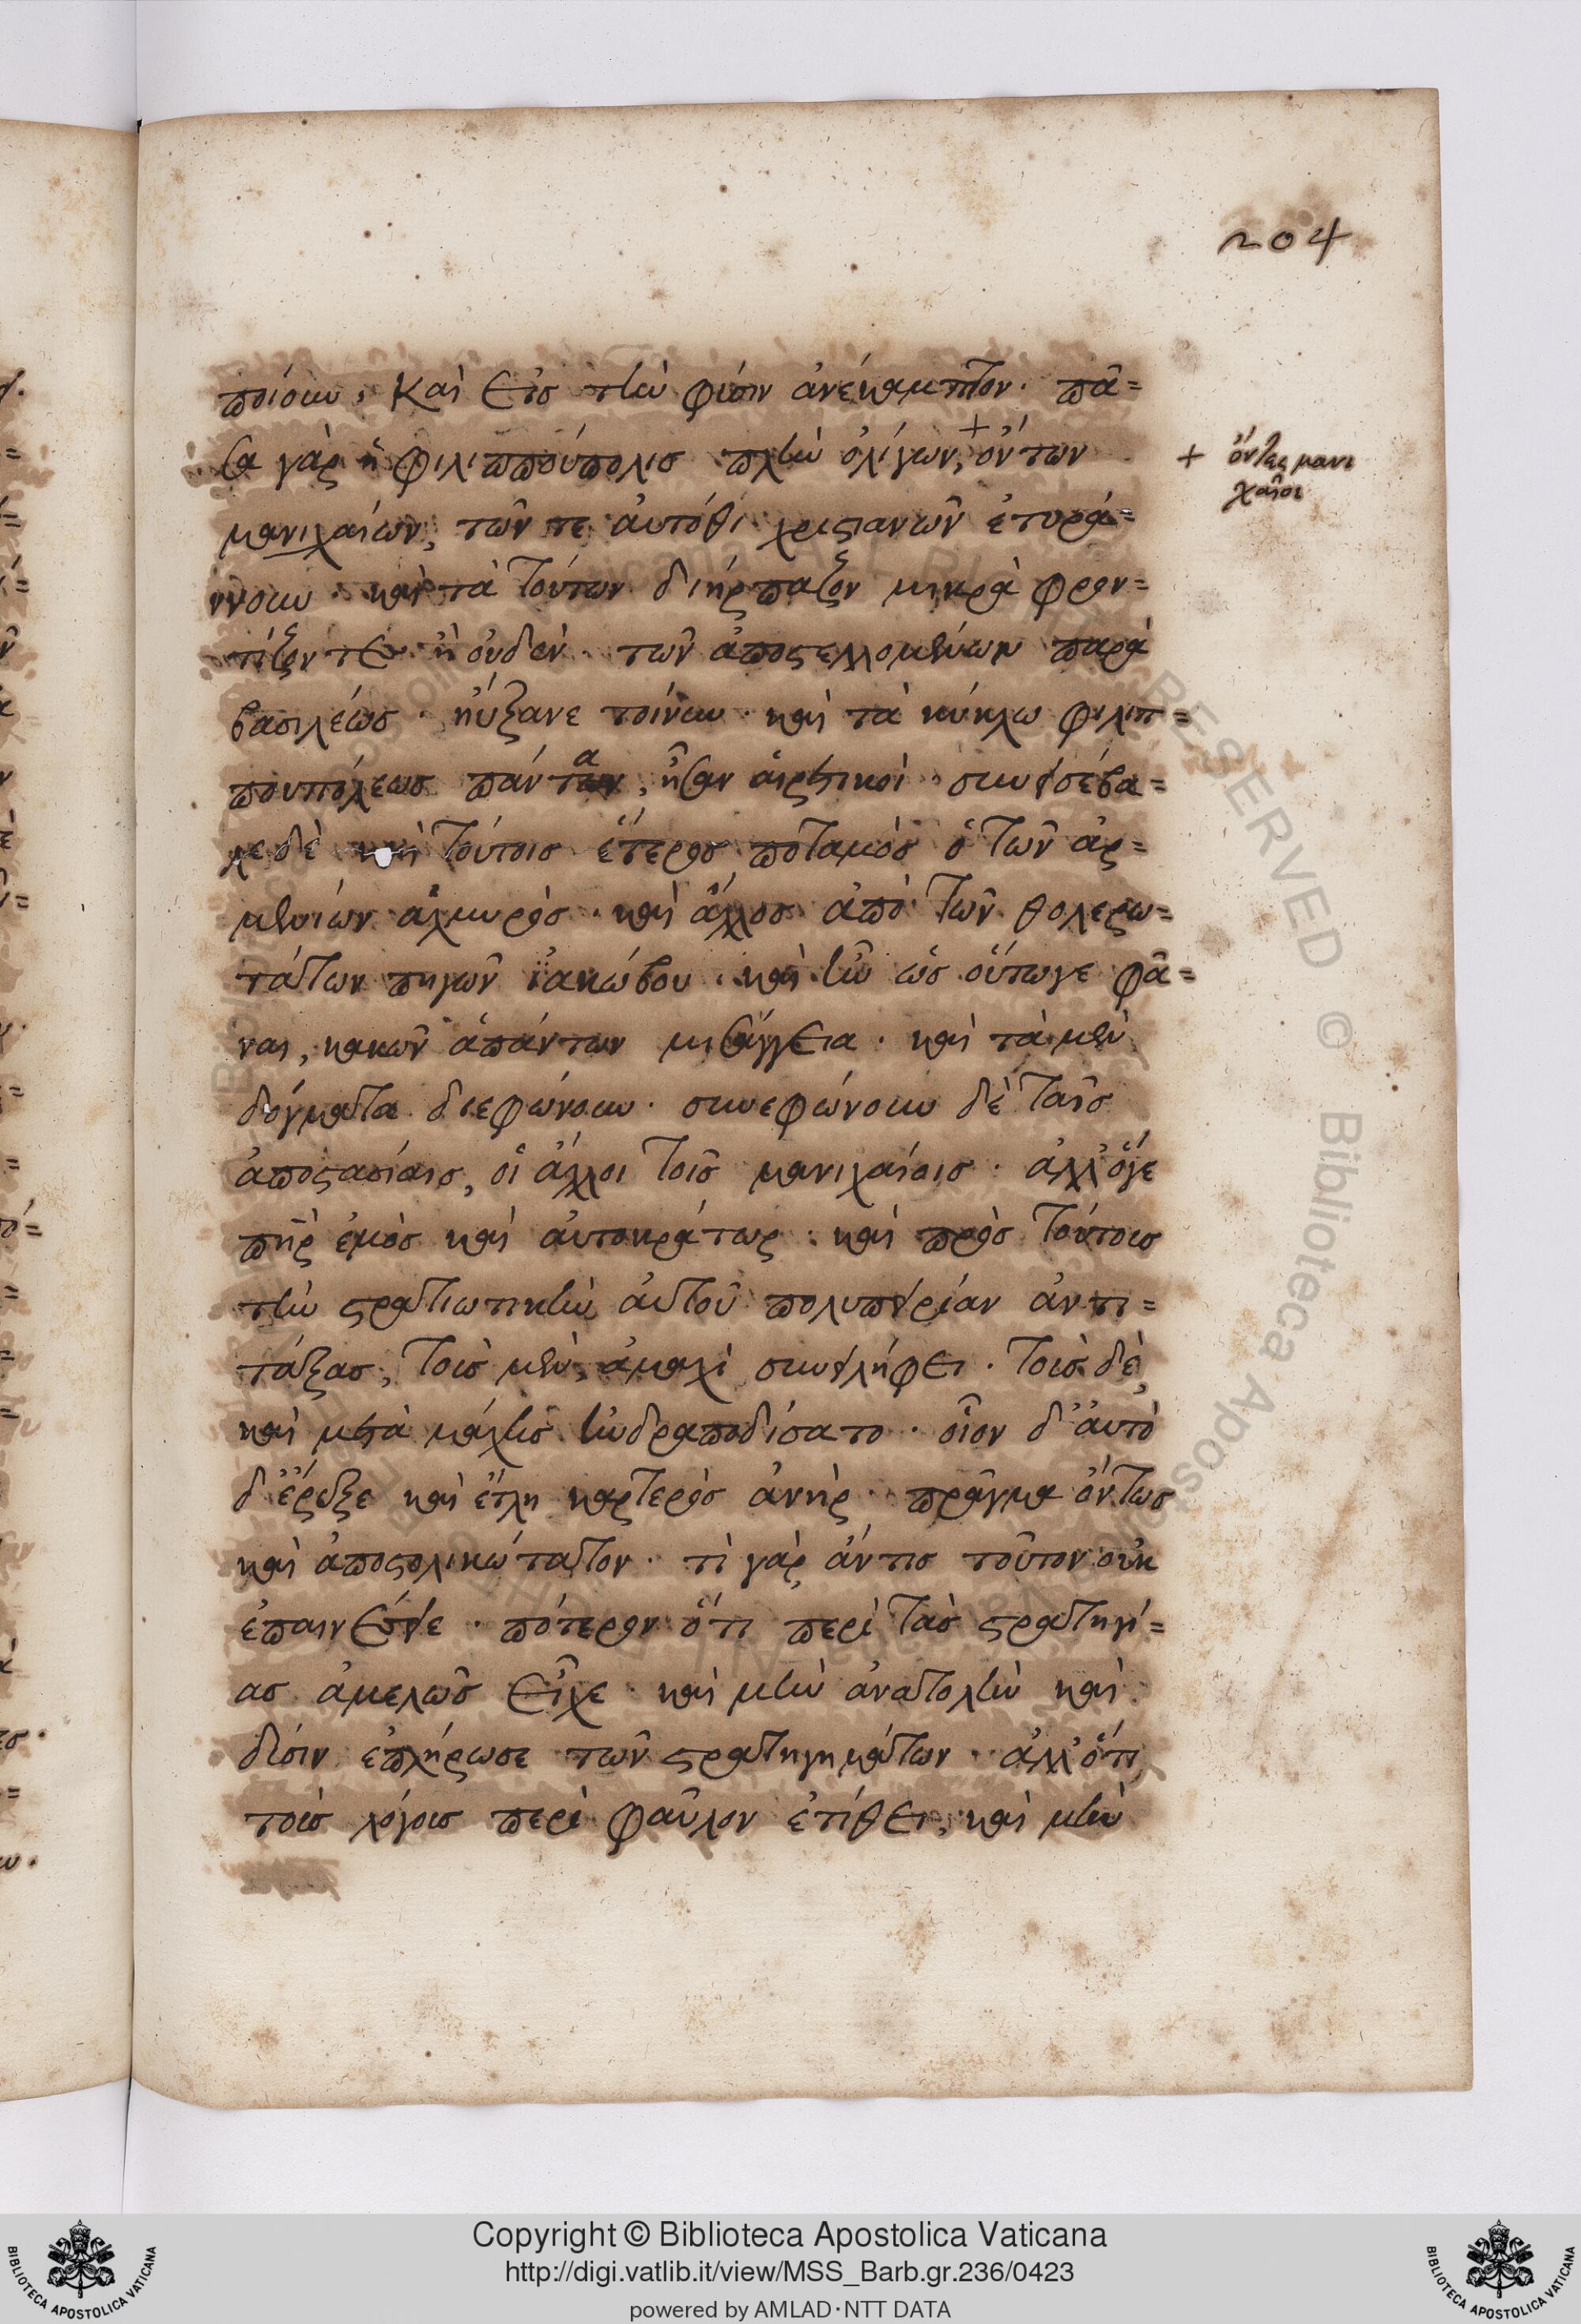 204
ποίουν, Καὶ εἰς τὴν φύσιν ἀνέκαμπτον. πᾶ=
σα γὰρ ἡ φιλιππούπολις πλὴν ὀλίγων, + ὄντων
μανιχαίων, τῶν τε αὐτόθι χριστιανῶν ἐτυρά=
ννουν. καὶ τὰ τούτων διήρπαζον μικρὰ φρον=
τίζοντες ἢ οὐδὲν. τῶν ἀποστελλομένων παρὰ
βασιλέως. ηὔξανε τοίνυν. καὶ τὰ κύκλω φιλιπ=
πουπόλεως πάντα, ἦσαν αἱρετικοί. συνεισέβα=
λε δὲ καὶ τούτοις ἕτερος ποταμὸς ὁ τῶν ἀρ=
μενίων ἁλμυρὸς. καὶ ἄλλος ἀπὸ τῶν θολερω=
τάτων πηγῶν ἰακώβου. καὶ ἦν ὡς οὕτωγε φᾶ=
ναι, κακῶν ἁπάντων μισάγγεια. καὶ τὰ μὲν
δόγματα διεφώνουν. συνεφώνουν δὲ ταῖς
ἀποστασίαις, οἱ ἄλλοι τοῖς μανιχαίοις. ἀλλ' ὅγε
πὴρ ἐμὸς καὶ αὐτοκράτωρ. καὶ πρὸς τούτοις
τὴν στρατιωτικὴν αὐτοῦ πολυπειρίαν ἀντι=
τάξας, τοὺς μὲν, ἀμαχὶ συνειλήφει. τοὺς δὲ,
καὶ μετὰ μάχης ἠνδραποδίσατο. οἷον δ' αὐτὸ
δ' ἔρεξε καὶ ἔτλη καρτερὸς ἀνὴρ. πρᾶγμα ὄντως
καὶ ἀποστολικώτατον. τί γὰρ ἄν τις τοῦτον οὐκ
ἐπαινέσειε. πότερον ὅτι περὶ τὰς στρατηγί=
ας ἀμελῶς εἶχε. καὶ μὴν ἀνατολὴν καὶ
δύσιν ἐπλήρωσε τῶν στρατηγημάτων. ἀλλ' ὅτι
τοὺς λόγους περὶ φαῦλον ἐτίθει, καὶ μὴν
+ ὄντες μανι
χαῖοι
Copyright © Biblioteca Apostolica Vaticana
http://digi.vatlib.it/view/MSS_Barb.gr.236/0423
powered by AMLAD·NTT DATA